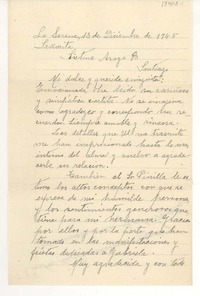 La Serena, 13 de Diciembre de 1945
Señorita
Santiago
Mi dulce y querida amiguita:
Emocionada he leído su cariñosa
y simpática cartita. No se imagina
como agradezco y correspondo sus re-
cuerdos siempre amable y sincera.
Los detalles que Ud. me trasmite
me han impresionado hasta lo más
íntimo del alma y vuelvo a agrade-
cerle su relación.
También al Sr. Pinilla le es-
timo los altos conceptos con que se
expresa de mi humilde persona
y los sentimientos que
tiene para mi hermana. Gracias
por ellos y por la parte que han
tomado en las manifestaciones y
fiestas dedicadas a Gabriela.
Muy agradecida y con todo